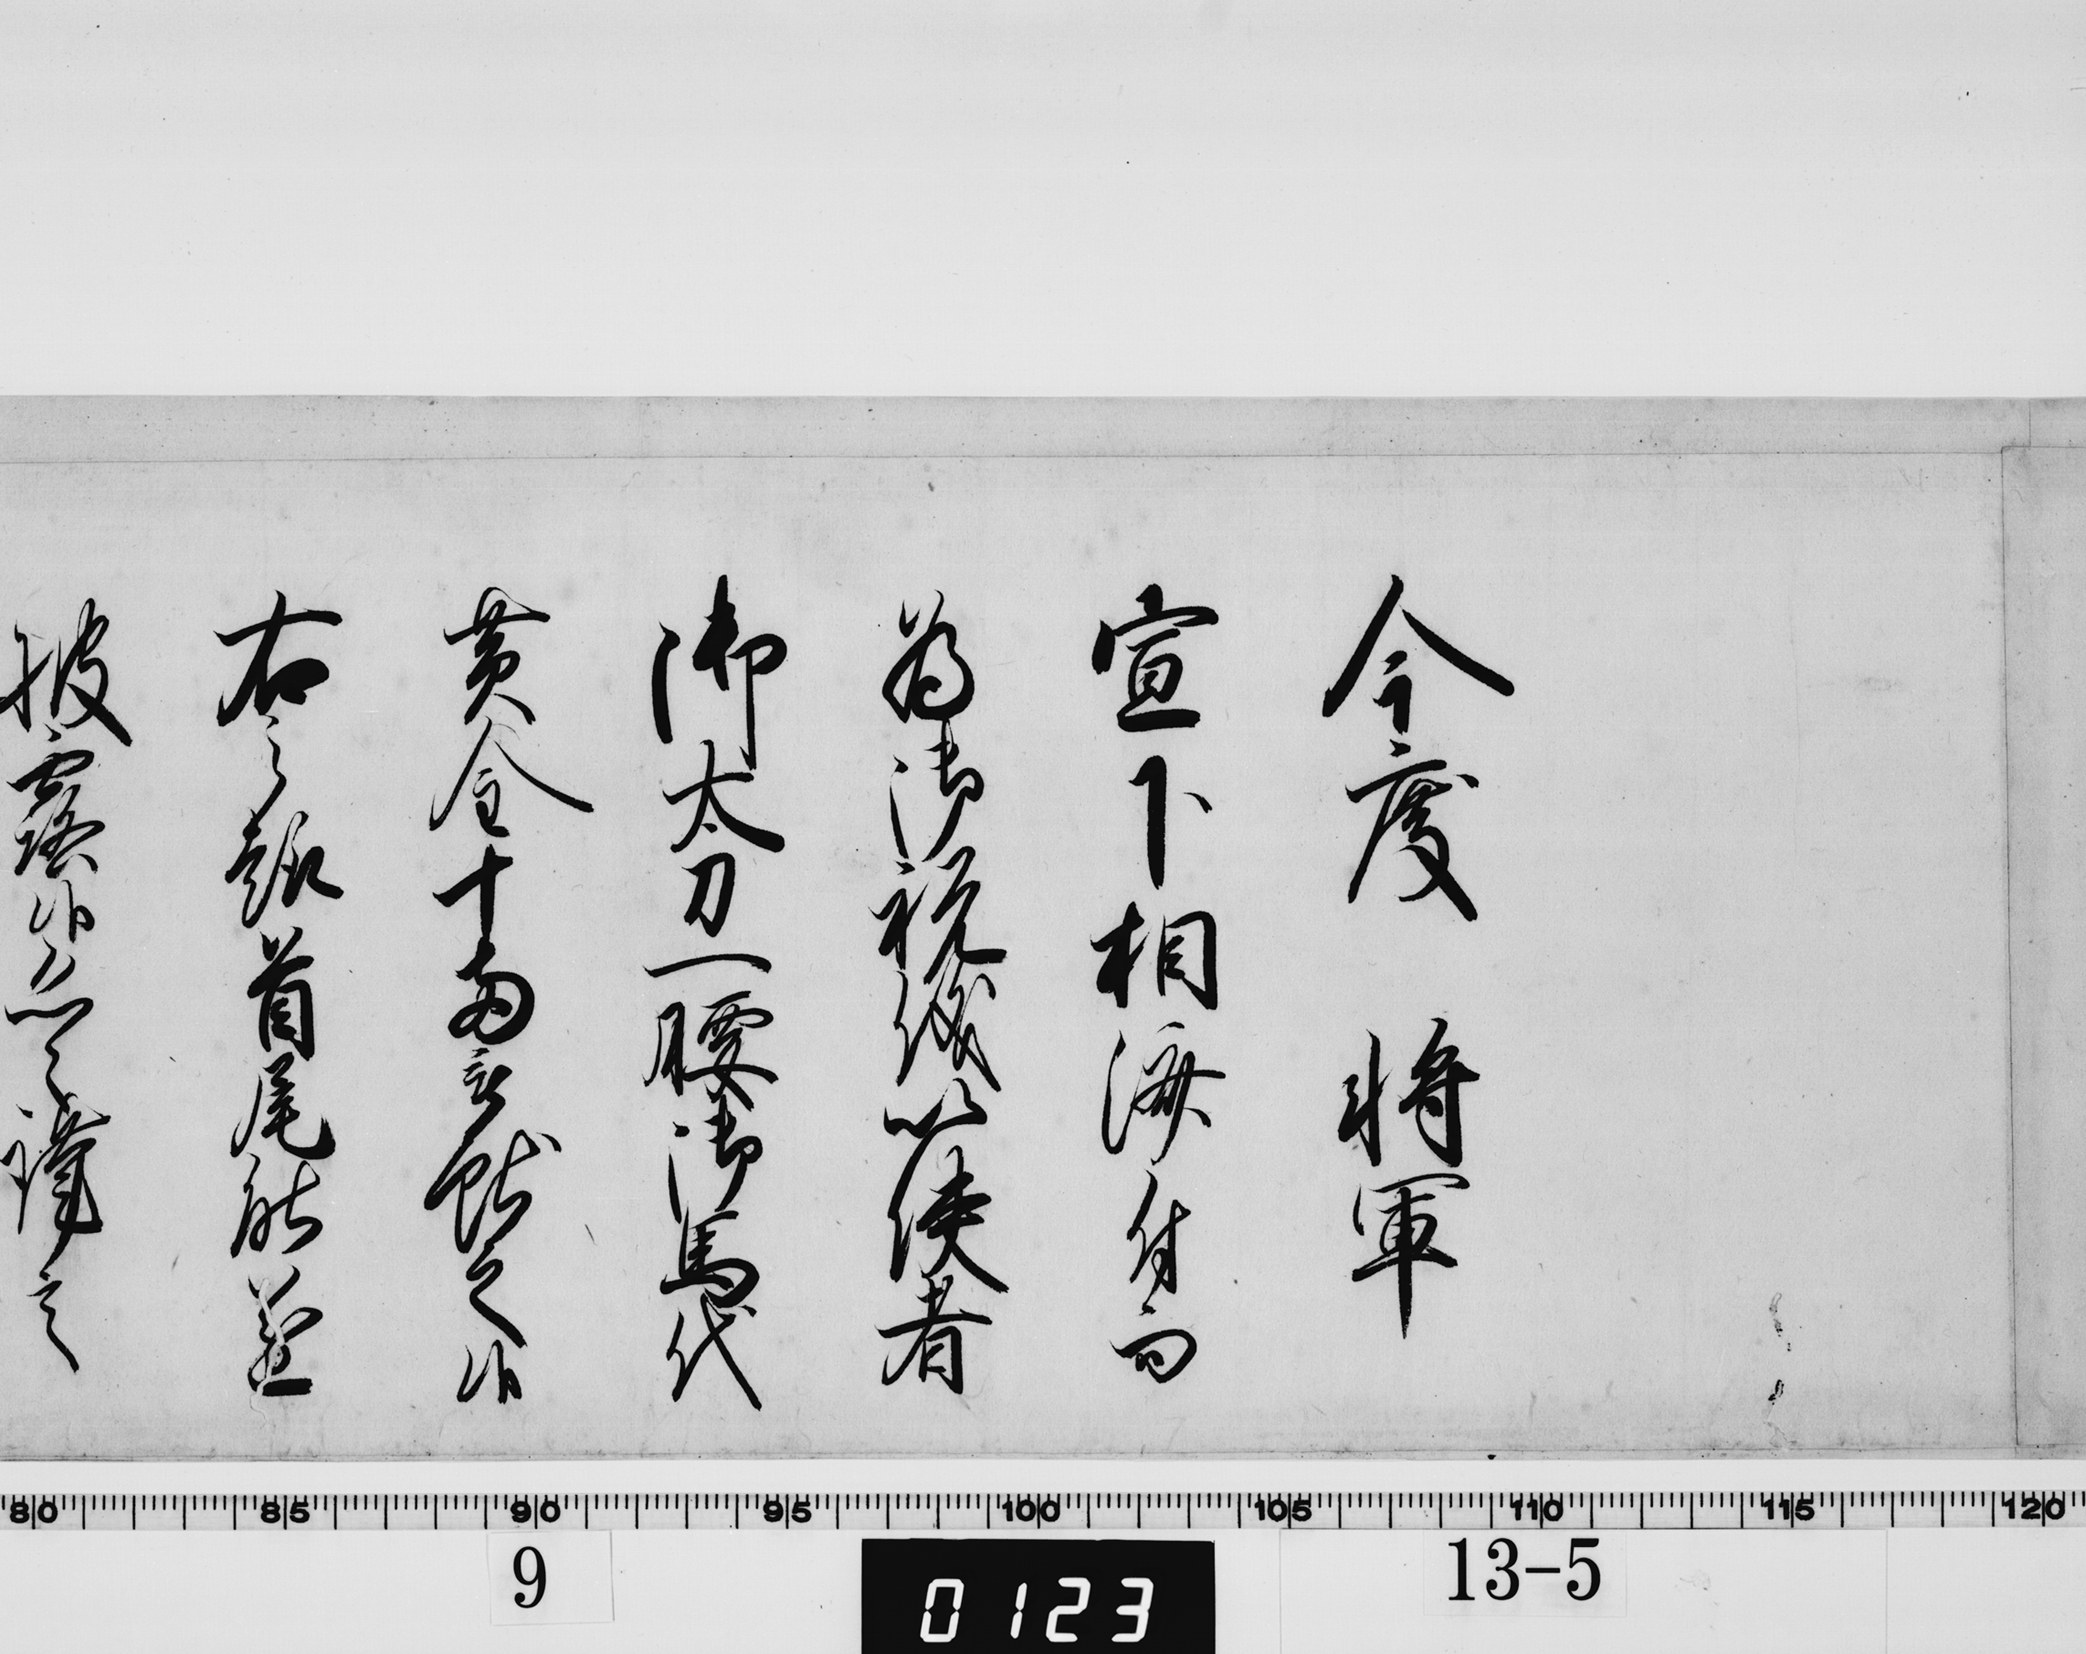 今度　将軍
宣下相済付而
為御祝儀以使者
御太刀一腰御馬代
黄金十両被献之候
右之趣首尾能遂
披露候恐々謹言
80 85 90 95 100 105 110 115 120
9
0123
13-5